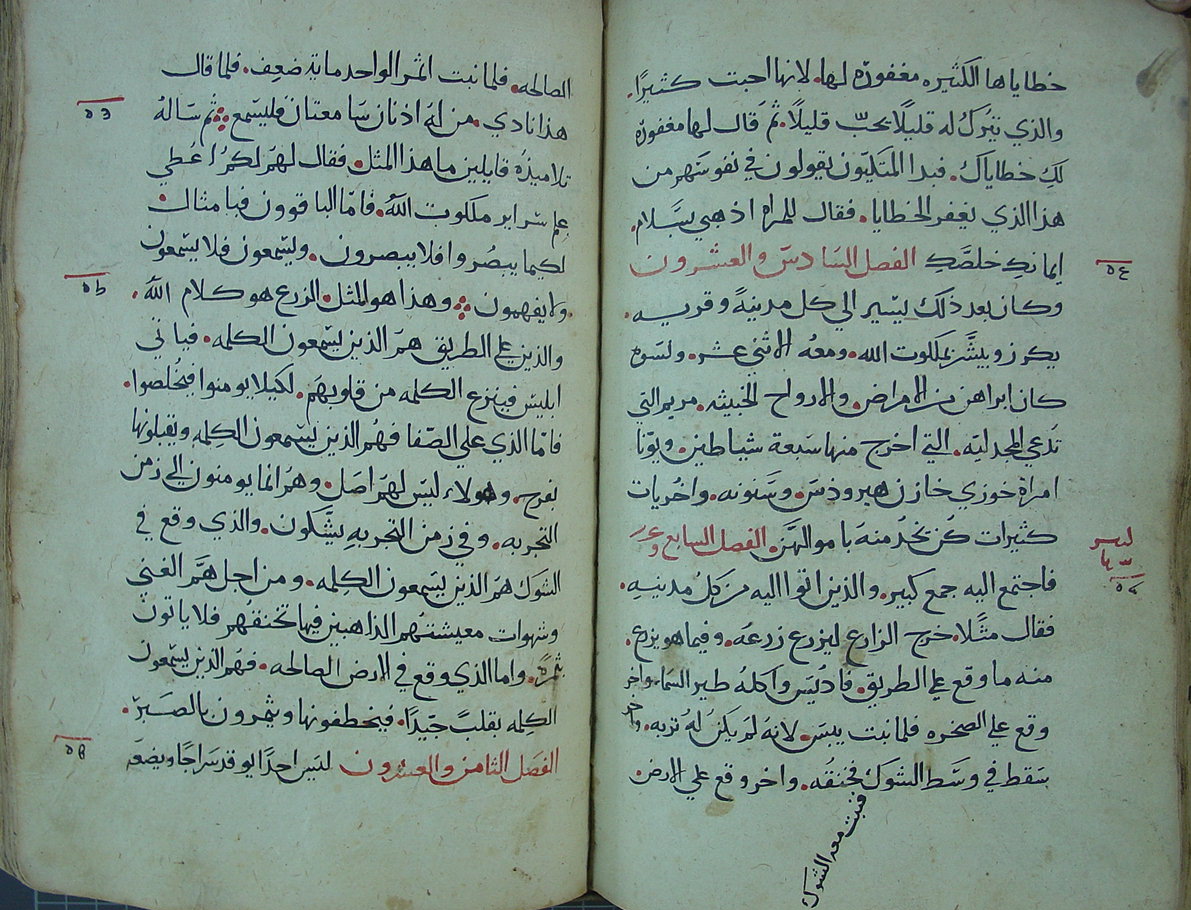 خطاياها الكثيره مغفوره لها. لانها احبت كثيرًا.
والذي يترك له قليلًا يحبّ قليلًا. ثم قال لها مغفورة
لك خطاياك. فبدا المتكيون يقولون في نفوسهم من
هذا الذي يغفر الخطايا. فقال للمراه اذهبي بسلام.
ايمانك خلصك الفصل السادس والعشرون
وكان بعد ذلك يسير الي كل مدينة وقريه.
يكرز ويبشر بملكوت الله. ومعه الاثني عشر. ونسوه
كان ابراهن من الامراض. والارواح الخبيثه. مريم التي
تدعي المجدليه. التي اخرج منها سبعة شياطين. ويونا
امراة خوزي خازن هيرودس. وسنونه. واخريات
كثيرات كن يخدمنه باموالهن. الفصل السابع وعشر
فاجتمع اليه جمع كبير. والذين اتوا اليه من كل مدينه.
فقال مثلًا. خرج الزارع ليزرع زرعه. وفيما هو يزرع.
منه ما وقع علي الطريق. فاديس واكله طير السما. واخر
وقع علي الصخره فلما نبت يبس. لانه لم يكن له تربه. واخر
سقط في وسط الشوك فخنقه. واخر وقع علي الارض.
فنبت معه الشوك
٥٤
٥٥
الصالحه. فلما نبت اثمر الواحد ماية ضعف. فلما قال
هذا نادي. من له اذنان سامعتان فليسمع ثم ساله
تلاميذه قايلين ما هذا المثل. فقال لهم لكم اعطي
علم سراير ملكوت الله. فاما الباقوون فبامثال.
لكيما يبصروا فلا يبصرون. ويسمعون فلا يسمعون
ولا يفهمون وهذا هو المثل. الزرع هو كلام الله.
والذين علي الطريق هم الذين يسمعون الكلمه. فياتي
ابليس فينزع الكلمه من قلوبهم. لكيلا يومنوا فيخلصوا.
فاما الذي علي الصفا فهم الذين يسمعون الكلمه ويقبلونها
بفرح. وهولاء ليس لهم اصل. وهم انما يومنون الي زمن
التجربه. وفي زمن التجربه يشكون. والذي وقع في
الشوك هم الذين يسمعون الكلمه. ومن اجل هم الغني
وشهوات معيشتهم الذاهبين فيها تخنقهم فلا ياتون
بثمرة. واما الذي وقع في الارض الصالحه. فهم الذين يسمعون
الكلمه بقلب جيدًا. فيخطفونها ويثمرون بالصبر.
الفصل الثامن والعشرون ليس احدًا يوقد سراجًا ويضعه